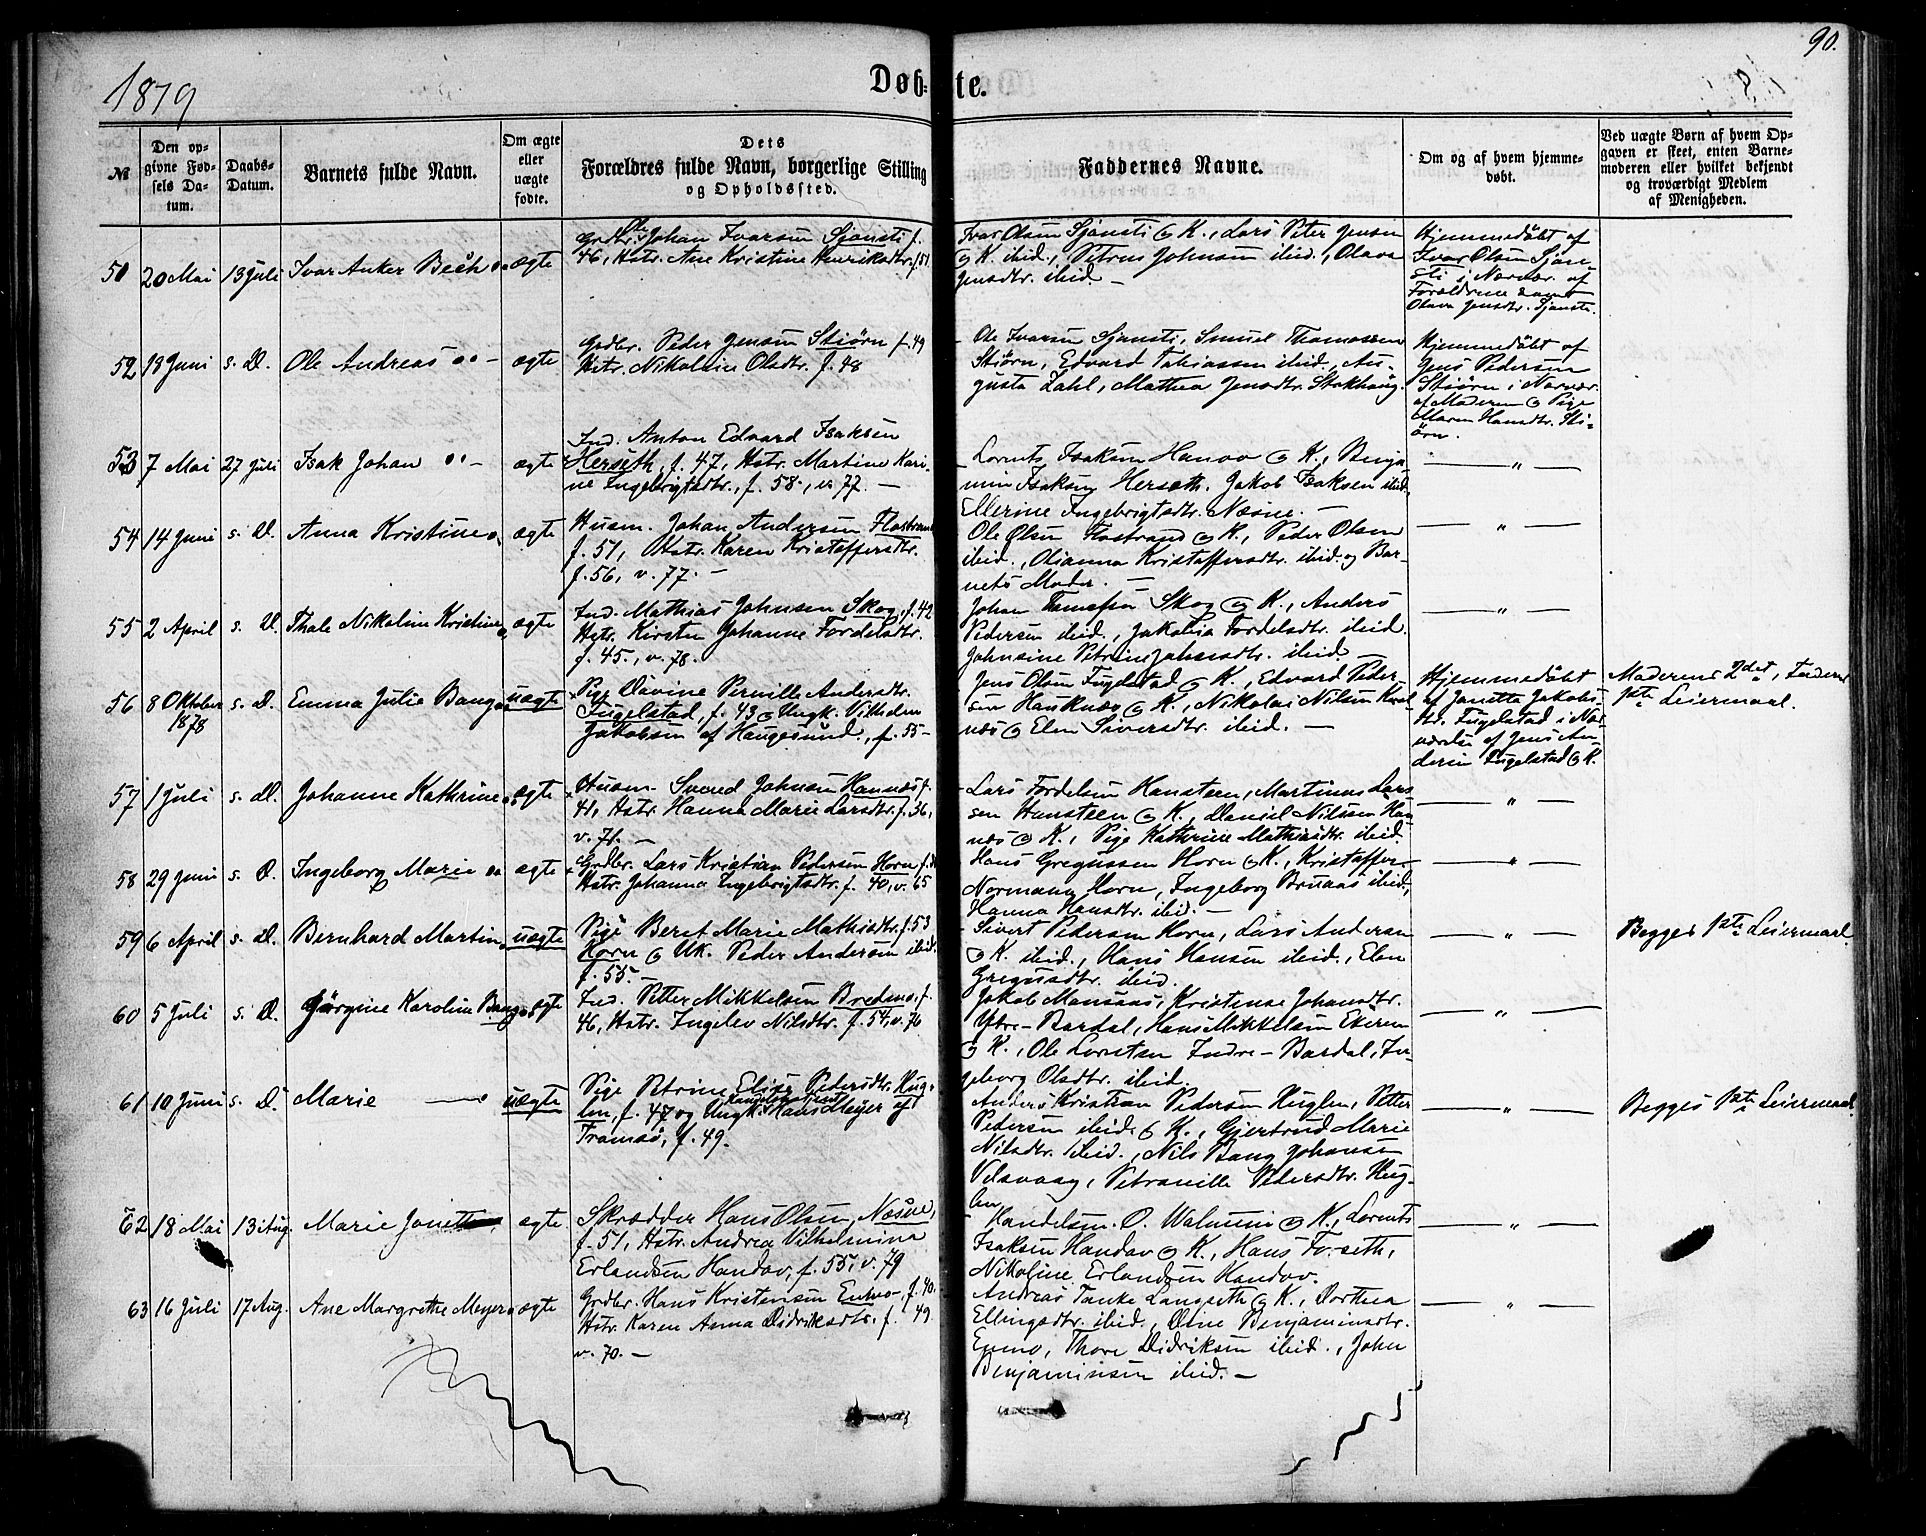 90.
1879
Døbte.
№
Den opgivne Fødsels Datum.
Daabs-Datum.
Barnets fulde Navn.
Om ægte eller uægte fødte.
Dets Forældres fulde Navn, borgerlige Stilling og Opholdssted.
Faddernes Navne.
Om og af hvem hjemmedøbt.
Ved uægte Børn af hvem Opgaven er skeet, enten Barnemoderen eller hvilket bekjendt og troværdigt Medlem af Menigheden.
51 20 Mai 13 Juli Ivar Anker Bech ægte
Grdbr. Ole Johan Ivarsen Sjonsti f.
46, Hstr. Ane Kristine Henriksdtr. f. 51
Ivar Olsen Sjonsti & K., Lars Peter Jensen
& K. ibid., Petrus Johnsen ibid., Olava
Jensdtr. ibid. —
Hjemmedøbt af
Ivar Olsen Sjon-
sti i Nærvær. af
Forældrene samt
Olava Jensdtr. Sjonsti.
52 18 Juni s. D. Ole Andreas ægte
Grdbr. Peder Jensen Stiørn f. 49
Hstr. Nikoline Olsdtr. f. 48
Ole Ivarsen Sjonsti, Smuel Thomassen
Stiørn, Edvard Tobiassen ibid., Au-
gusta Zahl, Mathea Jensdtr. Stokhaug.
Hjemmedøbt af
Jens Pedersen
Stiørn i Nærvær.
af Moderen & Pige
Maren Hansdtr. Sti-
ørn.
53 7 Mai 27 Juli Isak Johan ægte
Ind. Anton Edvard Isaksen
Herseth, f. 47, Hstr. Martine Kari-
ne Ingebrigtsdtr., f. 58, v. 77. —
Lorents Isaksen & K., Benja-
min Isaksen Herseth, Jakob Isaksen ibid.
Ellerine Ingebrigtsdtr. Næsne. —
— „ —
54 14 Juni s. D. Anna Kristine ægte
Husm. Johan Andersen Flostrand
f. 51, Hstr. Karen Kristoffersdtr.
f. 56, v. 77. —
Ole Olsen Flostrand & K., Peder Olsen
ibid., Kristoffersdtr. ibid. og Bar-
nets Moder. —
— „ —
55 2 April s. D. Thale Nikoline Kristine ægte
Ind. Mathias Johnsen Skog, f. 42
Hstr. Kirsten Johanne Fordelsdtr.
f. 45., v. 78.
Johan Skog & K., Anders
Pedersen ibid., Jakobia Fordelsdtr. ibid.
Johnsine Petrine Johnsdtr. ibid.
— „ —
56 8 Oktober 1878 s. D. Emma Julie Bang uægte
Pige Davine Pernille Andersdtr.
Fugelstad, f. 43 & Ungk. Vilhelm
Jakobsen af Haugesund., f. 55 —
Jens Olsen Fugelstad & K., Edvard Peder-
sen Hauknæs & K., Nikolai Nilsen Hauk-
næs & Elen Siversdtr. ibid. —
Hjemmedøbt
af Janetta Jakobs-
dtr. Fugelstad i Nær-
værelse af Jens An-
dersen Fugelstad & K.
Moderens 2det, Faderens
1ste Leiermaal.
57 1 Juli s. D. Johanne Kathrine ægte
Husm. Svend Johnsen Hannæs f.
41, Hstr. Hanna Marie Larsdtr. f. 36,
v. 71. —
Lars Fordelsen Hansteen, Martinus Lars-
sen Hansteen & K., Daniel Nilssen Han-
næs & K., Pige Kathrine Mathiasdtr. ibid.
— „ —
58 29 Juni s. D. Ingeborg Marie ægte
Grdbr. Lars Kristian Pedersen Horn f.
Hstr. Johanna Ingebrigtsdtr. f. 40, v. 65
Hans Gregussen Horn & K., Kristoffer
Normann Horn, Ingeborg Bruaas ibid.,
Hanna Hansdtr. ibid. —
— „ —
59 6 April s. D. Bernhard Martin uægte
Pige Beret Marie Mathisdtr. f. 53
Horn & Uk. Peder Andersen ibid.
f. 55. —
Sivert Pedersen Horn, Lars Andersen
& K. ibid., Hans Hansen ibid., Elen
Gregusdtr. ibid.
— „ —
Begges 1ste Leiermaal.
60 5 Juli s. D. Jørgine Karoline Bang ægte
Ind. Petter Mikkelsen Bredmo, f.
46, Hstr. Ingelev Nilsdtr. f. 54, v. 76
Jakob Monsaas, Kristense Johansdtr.
Ytre-Bardal, Hans Mikkelsen Ekeren
& K., Ole Lorntsen Indre-Bardal, In-
geborg Olsdtr. ibid.
— „ —
61 10 Juni s. D. Marie — uægte
Pige Petrine Elise Pedersdtr. Hug-
len, f. 47 og Ungk. Handelsbetjent Hans Meyer af
Tromsø, f. 49.
Anders Kristian Pedersen Huglen, Petter
Pedersen ibid. & K., Gjertrud Marie
Nilsdtr. ibid., Nils Bang Johansen
Vilavaag, Petronille Pedersdtr. Hug-
len
— „ —
Begges 1ste Leiermaal
62 18 Mai 13 Aug. Marie Jonette ægte.
Skrædder Hans Olsen Næsne,
f. 51, Hstr. Andrea Vilhelmina
Erlandsen Handov, f. 55, v. 79
Handelsm. O. Walnum & K., Lorents
Isaksen Handov & K., Hans Forseth,
Nikoline Erlandsen Handov.
— „ —
63 16 Juli 17 Aug. Ane Margrethe Meyer ægte
Grdbr. Hans Kristensen Enmo, f. 40.
Hstr. Karen Anna Didriksdtr. f. 49
v. 70. —
Andreas Tanke Langseth & K., Dorthea
Ellingsdtr. ibid., Dine Benjaminsdtr.
Enmo, Thore Didriksen ibid., John
Benjaminsen ibid. —
— „ —